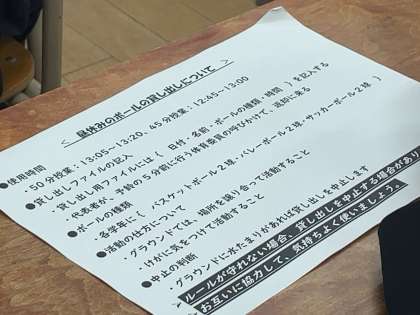 ＜ 昼休みのボールの貸し出しについて ＞
●使用時間
・50分授業：13:05～13:20、45分授業：12:45～13:00
●貸し出しファイルの記入
・貸し出し用ファイルには（ 日付・名前・ボールの種類・時間 ）を記入する
・代表者が、予鈴の5分前に行う体育委員の呼びかけで、返却に来る
●ボールの種類
・各学年に（ バスケットボール2球・バレーボール2球・サッカーボール2球 ）
●活動の仕方について
・グラウンドでは、場所を譲り合って活動すること
・けがに気をつけて活動すること
●中止の判断
・グラウンドに水たまりがあれば貸し出しを中止します
ルールが守れない場合、貸し出しを中止する場合があり
お互いに協力して、気持ちよく使いましょう。